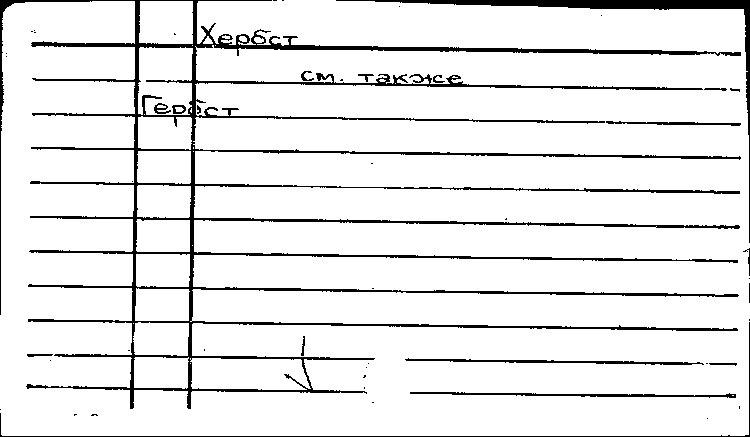 Хербст
см. также
Гербст